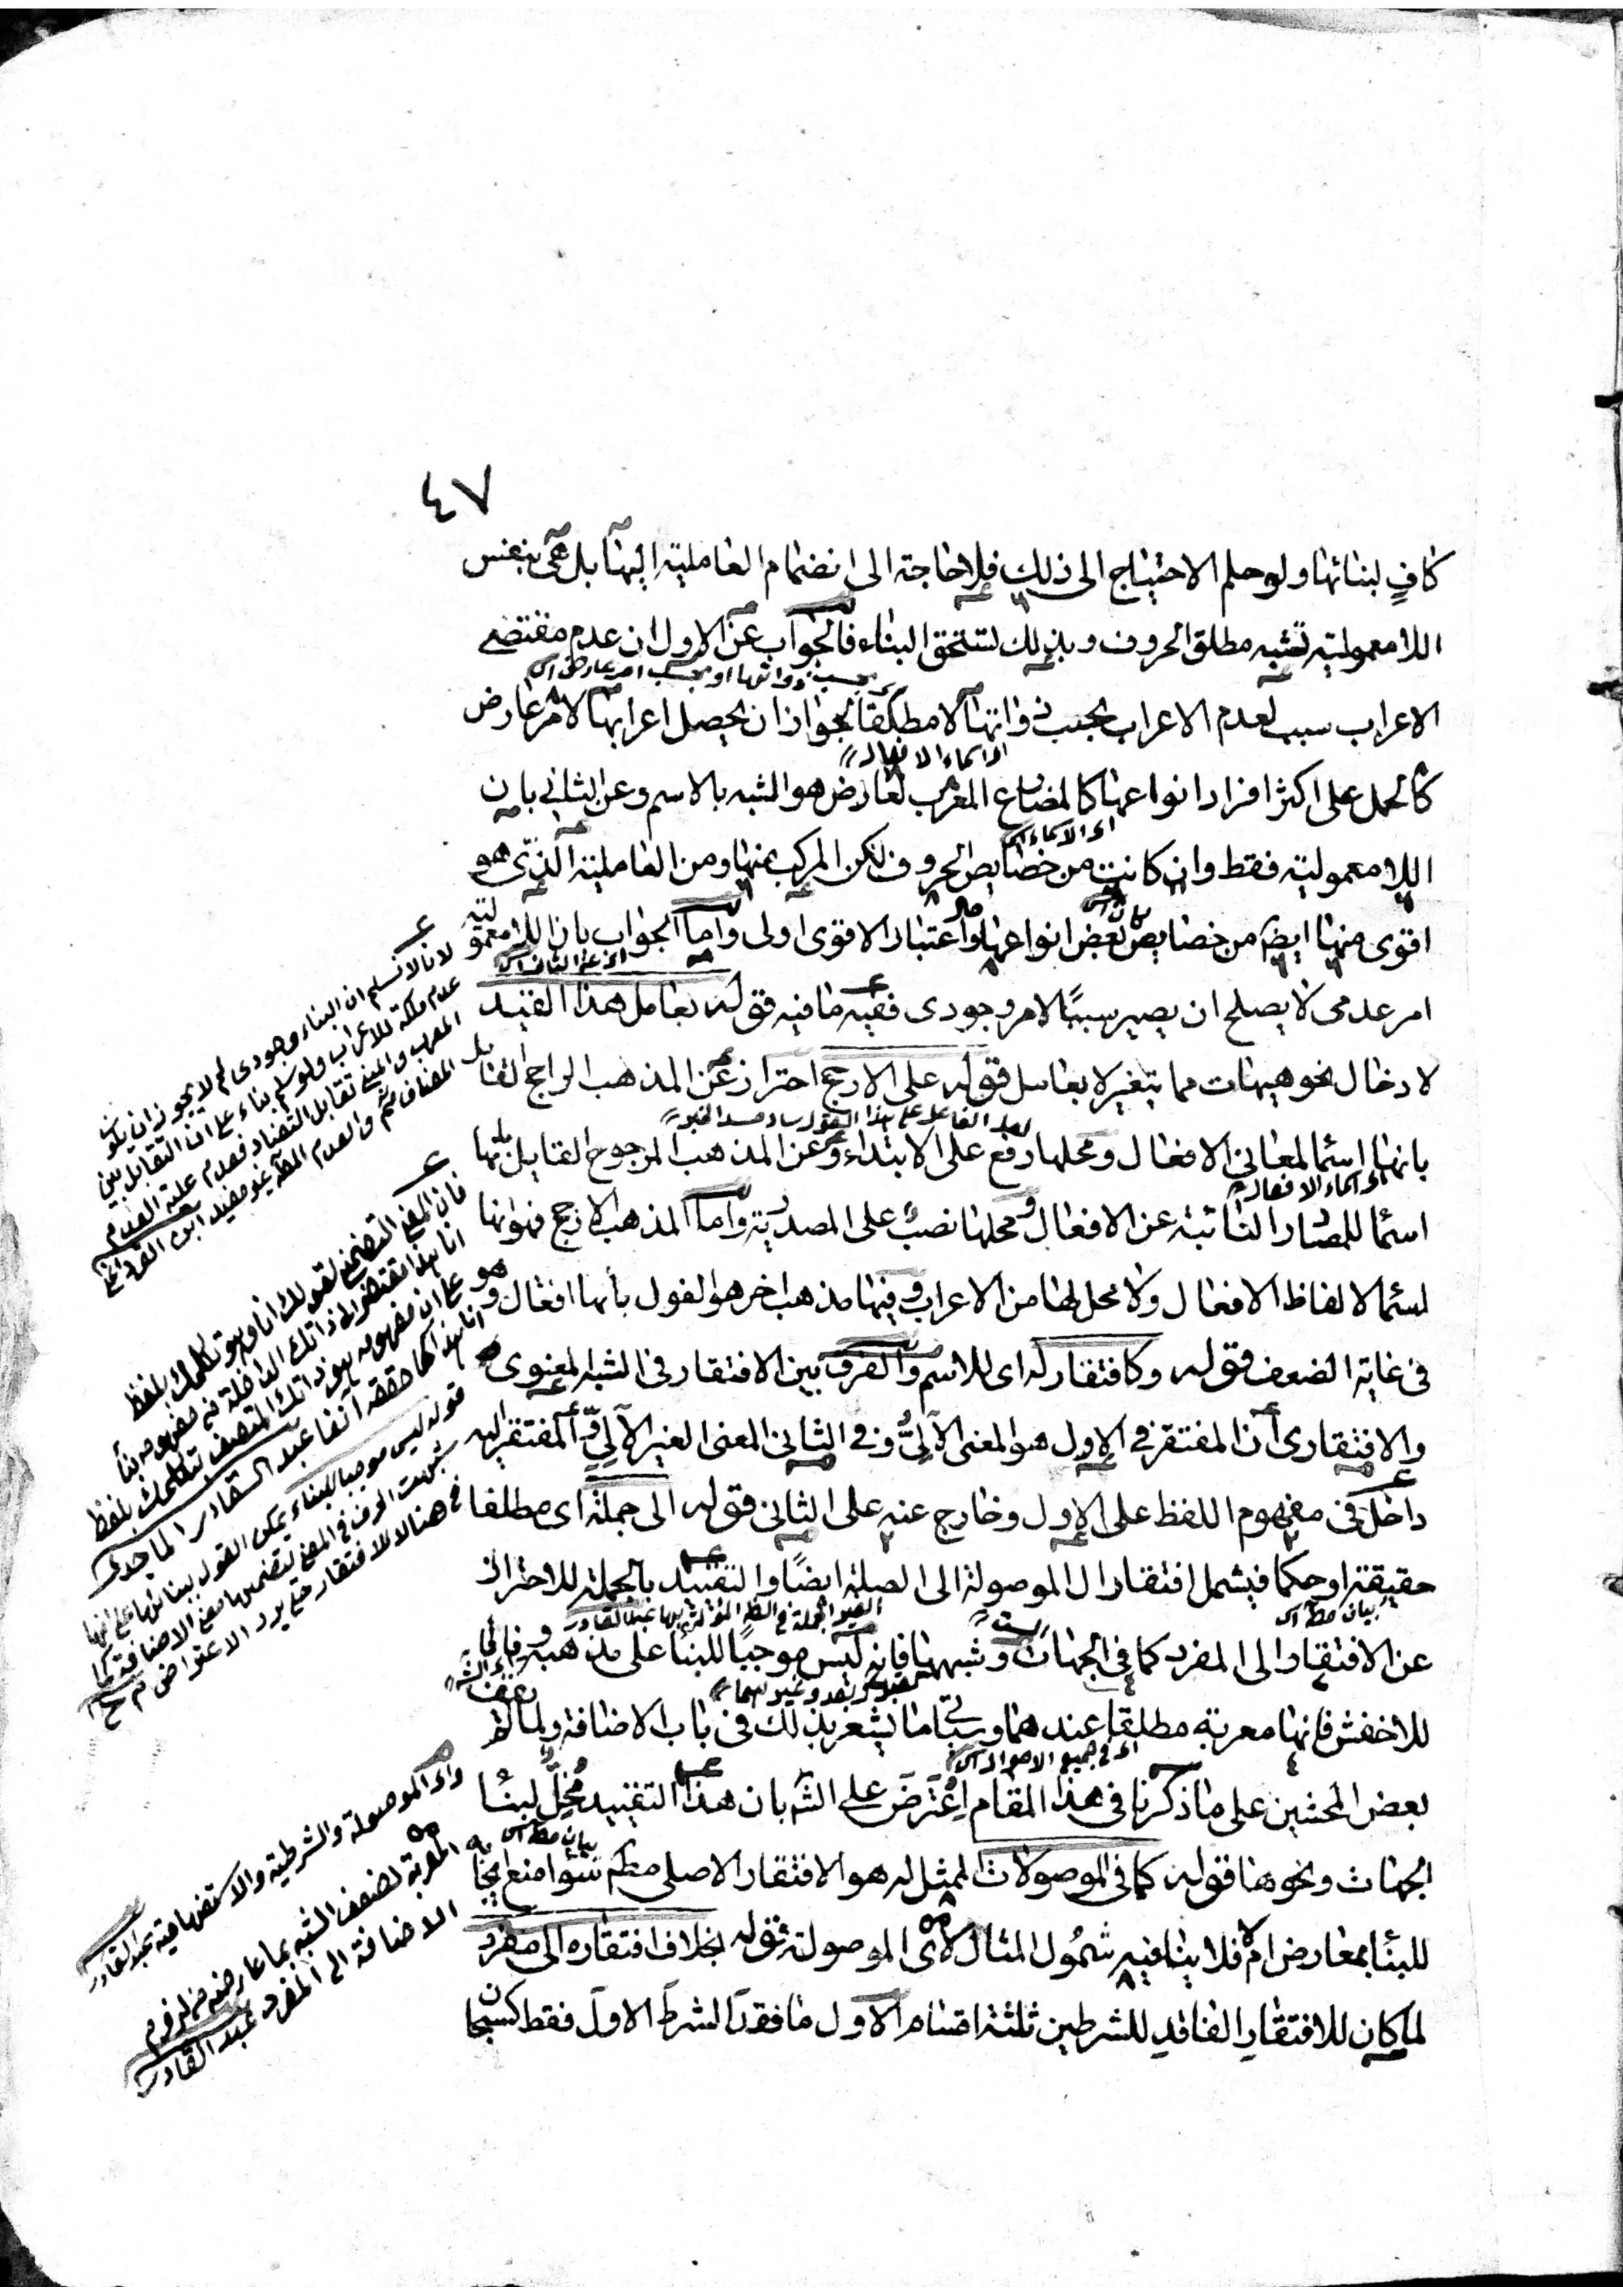 ٤٧
كافٍ لبنائها ولو سلم الاحتياج الى ذلك فلا حاجة الى انضمام العاملية اليها بل هى بنفس
اللا معمولية تشبه مطلق الحروف وبذلك تستحق البناء فالجواب عن الاول ان عدم مقتضى
بحسب ذواتها او بحسب امر عارض
الاعراب سبب لعدم الاعراب بحسب ذواتها لا مطلقا لجواز ان يحصل اعرابها لامر عارض
اى اسماء الافعال
كالحمل على اكثر افراد انواعها كالمضارع المعرب لعارض هو الشبه بالاسم وعن الثانى بان
اى الاسماء
اللا معمولية فقط وان كانت من خصايص الحروف لكن المركب منها ومن العاملية الذى هو
اقوى منها ايضا من خصايص بعض انواعها واعتبار الاقوى اولى واما الجواب بان اللا معمولية
اى عن الثانى
امر عدمى لا يصلح ان يصير سببًا لامر وجودى ففيه ما فيه قوله بعامل هذا القيد
لادخال نحو هيهات مما يتغير لا بعامل قوله على الارجح احتراز عن المذهب الراجح القايل
الفاعل على هذا القول ساد مسد الخبر
بانها اسما لمعانى الافعال ومحلها رفع على الابتداء وعن المذهب المرجوح القايل بانها
اى اسماء الافعال
اسما للمصادر النائبة عن الافعال ومحلها نصب على المصدرية واما المذهب الارجح فهو انها
اسما لالفاظ الافعال ولا محل لها من الاعراب وفيها مذهب اخر هو القول بأنها افعال وهو
فى غاية الضعف قوله وكافتقار له اى للاسم والفرق بين الافتقار فى الشبه المعنوى
والافتقارى أن المفتقر فى الاول هو المعنى الآلىُّ وفى الثانى المعنى الغير الآلىِّ المفتقر اليه
داخل فى مفهوم اللفظ على الاول وخارج عنه على الثانى قوله الى جملة اى مطلقا
حقيقة او حكما فيشمل افتقار ال الموصولة الى الصلة ايضًا والتقييد بالجملة للاحتراز
عن الافتقار الى المفرد كما فى الجهات الست وشبهها فانه ليس موجبًا للبنا على مذهبه
للاخفش فانها معربة مطلقا عندهما وسيأتى ما يشعر بذلك فى باب الاضافة ولما لم
اى فى جميع الاحوال
بعض المحشين على ما ذكرنا فى هذا المقام اِعْتَرَضَ على الشَّ بان هذا التقييد مُخِلٌّ لبنا
الجهات ونحوها قوله كما فى الموصولات الممثل له هو الافتقار الاصلى مطلقا سوا منع
للبنا بمعارض ام لا فلا ينافيه شمُول المثال لاى الموصولة قوله بخلاف افتقاره الى مفرد
لما كان للافتقار الفاقد للشرطين ثلثة اقسام الاول ما فقد الشرط الاول فقط كسبحان
لانا لا نسلم ان البناء وجودى لم لا يجوز ان يكون
عدم ملكة للاعراب ولو سلم بناء على ان التقابل بين
المعرب والمبنى تقابل التضاد فعدم علية العدم
فان المعنى التضمنى لقولك انا وهو تكلمك بلفظ
على ان مفهومه هو ذاتك المتصف بتكلمك بلفظ
انا هذا كما حققه آنفا عبد القادر الماجدى
قوله ليس موجبا للبناء يمكن القول ببنائها على انها
شبهت الحرف فى المعنى لتضمنها معنى الاضافة كما
فى هنا لا للافتقار حتى يرد الاعتراض
واى الموصولة والشرطية والاستفهامية عبد القادر
المعربة لضعف الشبه بما عارضه من لزوم
الاضافة الى المفرد عبد القادر